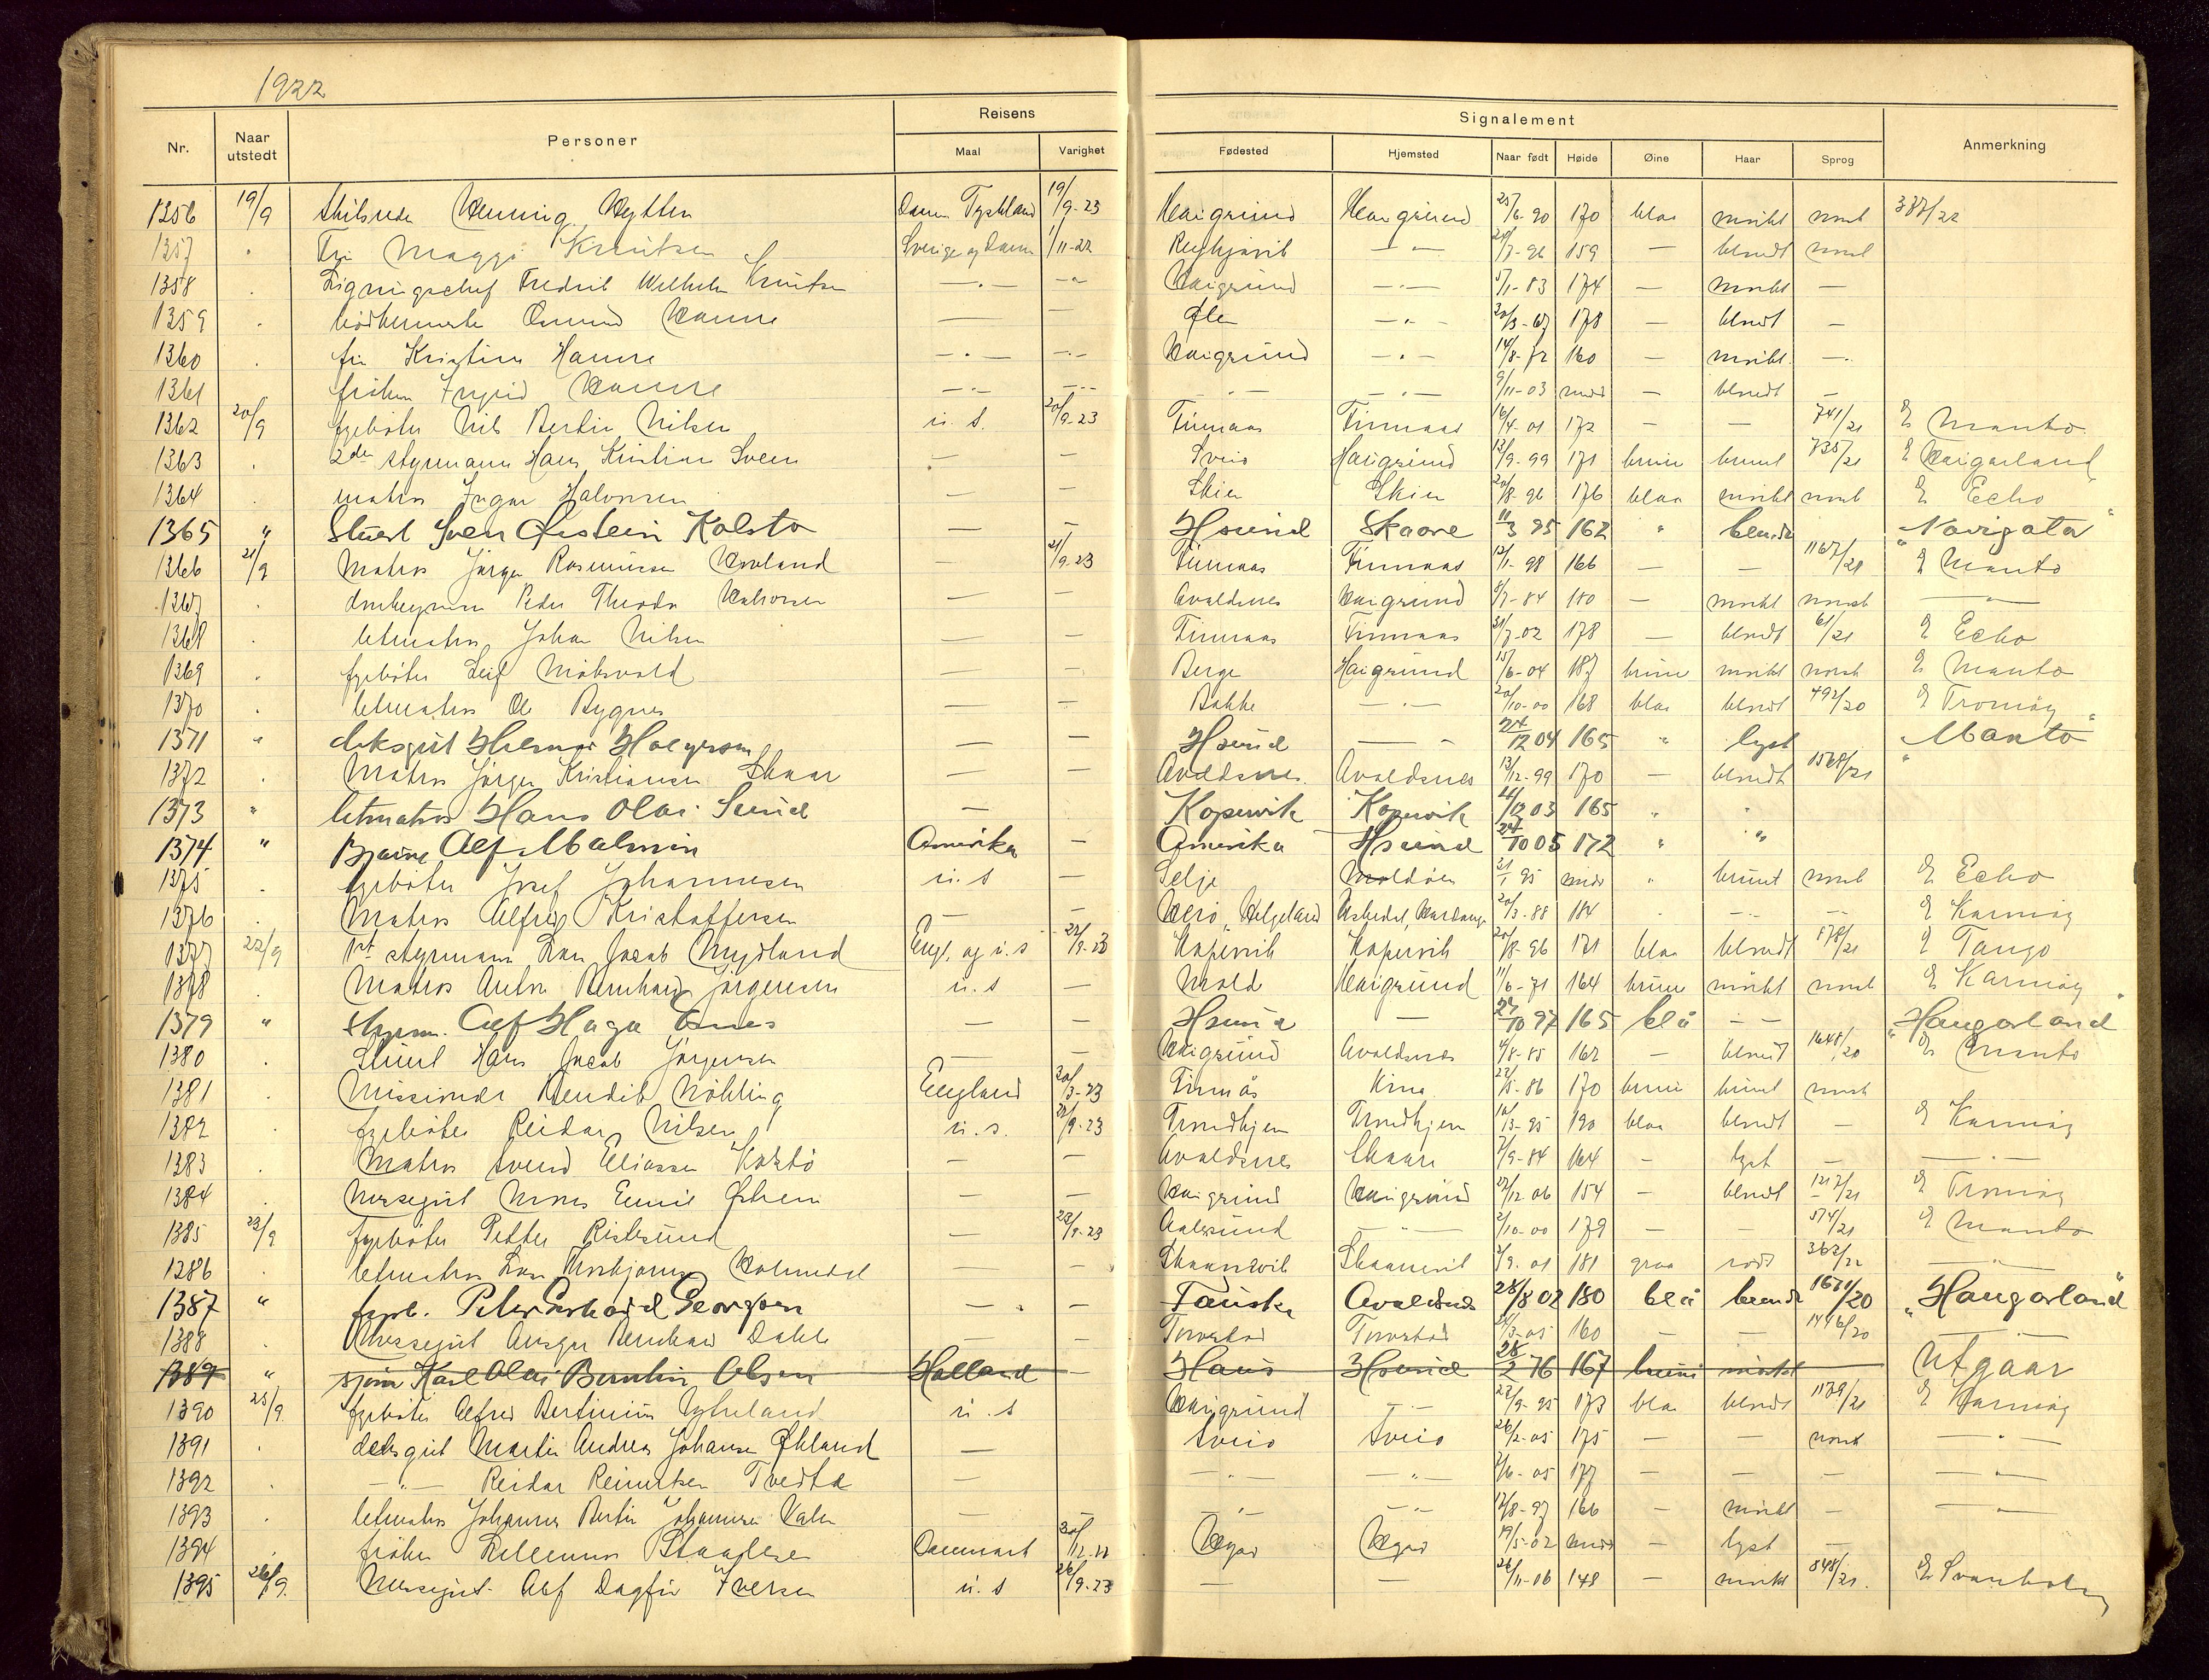 1922
Nr. Naar utstedt Personer Reisens Maal Varighet Fødested Hjemsted Signalement Naar født Høide Øine Haar Sprog Anmerkning
1356 19/9 Henning Danm Tyskland 19/9-23 Haugesund Haugesund 25/6-90 170 blaa mørkt norsk 387/22
1357 . Fru Maggi Knutsen Sverige og Danm 1/11-22 Reykjavik — " — 96 159 — blondt norsk
1358 . Ligningschef Fredrik Wilhelm Knutsen — " — — " Haugesund — " — 5/1-83 174 — mørkt —
1359 . Osmund Hamre — — Ølen — " — 20/3-67 178 — blondt —
1360 . fru Kristine Hamre — " — — " — Haugesund — " — 14/8-72 160 — mørkt —
1361 . frøken Ingrid Hamre — " — — " — — " — — " — 9/11-03 midd — blondt —
1362 20/9 fyrbøter Nils Bertin Nilsen u. s. 20/9-23 Finnaas Finnaas 16/4-01 172 — — 741/21 D/S Manto
1363 . 2den styrmann Hans Kristian Sveen — — Sveio Haugesund 13/9-99 171 brune brunt 735/21 D/S Haugarland
1364 . matros Ingar Halvorsen — — Skien Skien 20/8-96 176 blaa mørkt norsk D/S Echo
1365 " Stuert Sven Østein Kolstø — — Hsund Skaare 11/3 95 162 " blondt "Navigata"
1366 21/9 Matros Jørgen Rasmussen Hovland — 21/9-23 Finnaas Finnaas 12/1-98 166 — — 1167/21 D/S Manto
1367 . donkeymann Peder Theodor Halvorsen — — Avaldsnes Haugesund 84 180 — mørkt norsk — " —
1368 . letmatros Johan Nilsen — — Finnaas Finnaas 31/7-02 178 — blondt 61/21 D/S Echo
1369 . fyrbøter Leif — — Berge Haugesund 15/6-04 187 brune mørkt norsk D/S Manto
1370 . letmatros Ole Bygnes — — Bokke — " — 20/10-00 168 blaa blondt 492/20 D/S Tromøy
1371 " deksgut Hilmar Holgersen — — Hsund — " 24/12 04 165 " lyst "Manto"
1372 . Matros Jørgen Kristiansen Skaar — — Avaldsnes Avaldsnes 13/12-99 170 — blondt 1568/21 "
1373 " letmatros Hans Olai Sund — Kopervik Kopervik 4/12 03 165 " "
1374 " Bjarne Alf Malmin Amerika — Amerika Hsund 24/10 05 172 " "
1375 . fyrbøter Josef Johannesen u. s — Selje Moldøen 21/1 95 midd " brunt norsk D/S Echo
1376 . Matros Alfred Kristoffersen — — Herø, Helgeland Hardanger 20/3-88 184 " — " — — D/S Karmøy
1377 22/9 1st styrmann Lars Jacob Mydland Engl. og u. s 22/9-23 Kopervik Kopervik 20/8-96 171 blaa blondt 878/21 D/S Tango
1378 . Matros Anton Bernhard Jørgensen u. s — Mold Haugesund 11/6-71 164 brune mørkt norsk D/S Karmøy
1379 " Styrm. Alf Haga Enes — — Hsund — 27/10 97 165 blå — — "Haugarland"
1380 . Stuert Hans Jacob Jørgensen — — Haugesund Avaldsnes 4/8-85 162 — blondt 1648/20 D/S Manto
1381 . Missionær Bendik England 30/3-23 Finnås Kina 22/5-86 170 brune brunt norsk
1382 . fyrbøter Reidar Nilsen u. s. 22/9-23 Trondhjem Trondhjem 16/3-95 190 blaa blondt — D/S Karmøy
1383 . Matros Svend Eliassen Kolstø — — Avaldsnes Skaare 7/9-84 164 — lyst — — " —
1384 . Messegut Emil Østhein — — Haugesund Haugesund 27/12 06 154 — blondt 1217/21 D/S Tromøy
1385 23/9 fyrbøter Petter Ristesund — 23/9-23 Aalesund — " — 2/10-00 179 — — 574/21 D/S Manto
1386 . letmatros Lars Thorbjørnsen — — Skaanevik Skaanevik 3/9-01 181 graa rødt 362/22 — " —
1387 " fyrb. Peter Gerhard Georgsen — " — Fauske Avaldsnes 28/8 02 180 blå blondt 1671/20 "Haugarland"
1388 . Messegut Ansgar Bernhard Dahle — — Torvestad Torvestad 05 160 — — 1446/20 — " —
1389 " sjøm Karl Olai Berntin Olsen Holland — Haus Hsund 28/2 76 167 brun mørkt Utgaar
1390 25/9 fyrbøter Alfred Bertinius Ytreland u. s Haugesund — " — 22/9-95 173 blaa blondt 1179/21 D/S Karmøy
1391 . deksgut Martin Andreas Johansen Økland — Sveio Sveio 26/2-05 175 — — norsk — " —
1392 . — " — Reidar Reinertsen Tvedta — — " — — " — 2/6-05 177 — — — — " —
1393 . letmatros Johannes Bertin Johannesen Valen — — — " — — " 12/8-97 166 — mørkt — — " —
1394 . frøken Staalesen Danmark 30/12-22 19/5-02 midd — lyst —
1395 26/9. Messegut Alf Dagfin Iversen u. s 26/9-23 — — 26/11-06 148 — mørkt 848/21. D/S Svanholm